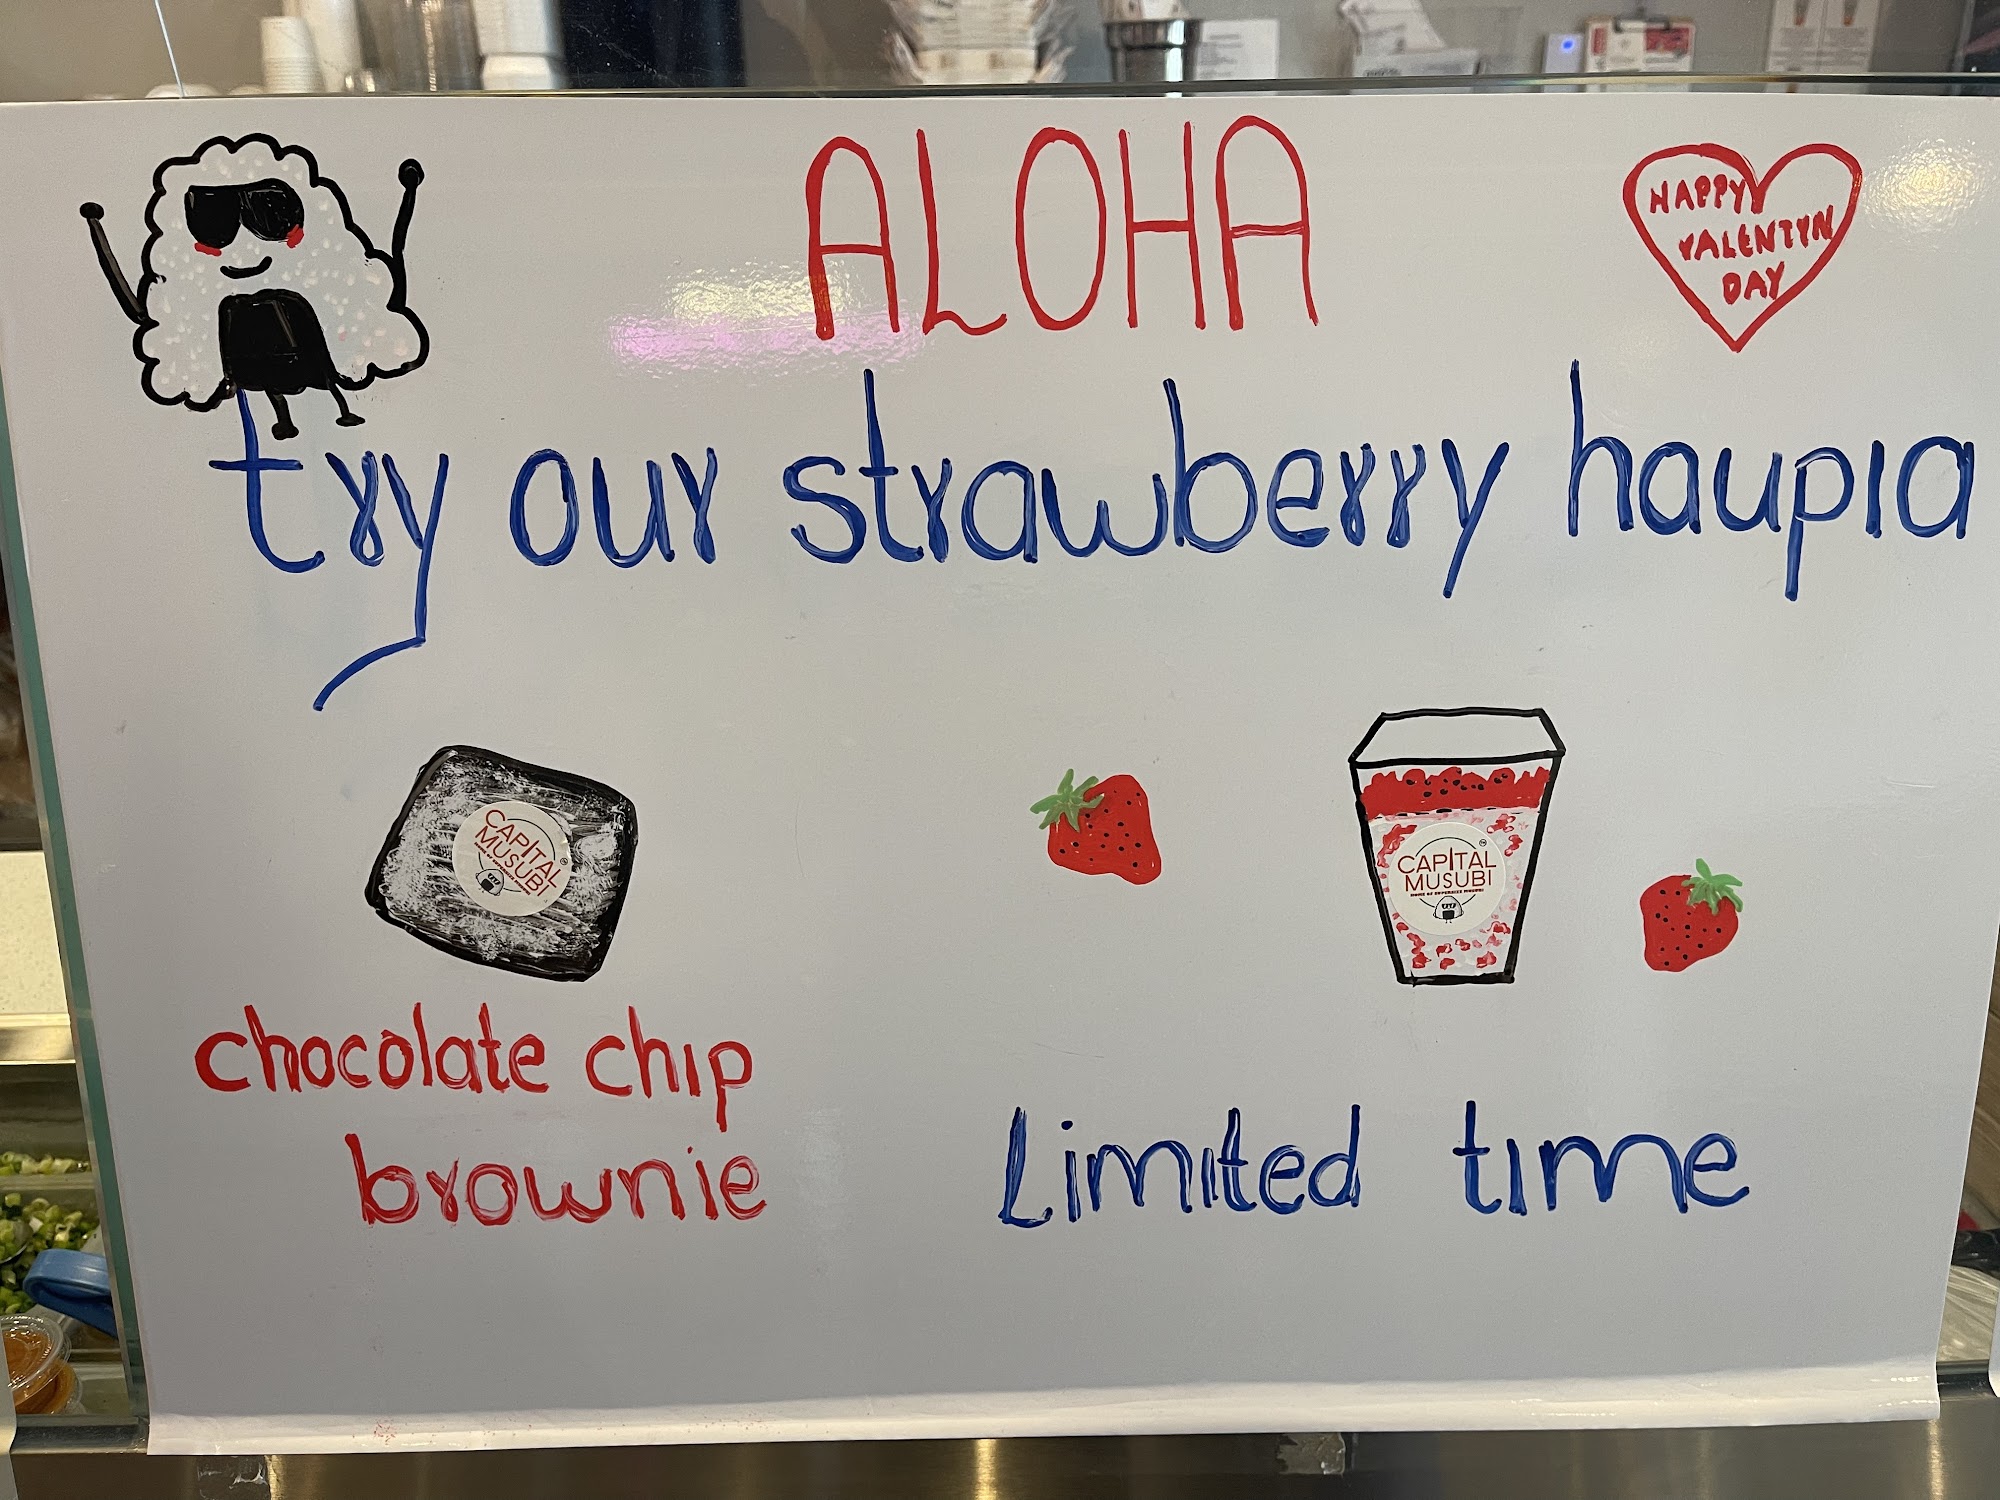 ALOHA
HAPPY
VALENTYN
DAY
try our strawberry haupia
CAPITAL
MUSUBI
CAPITAL
MUSUBI
HOME OF SUPERSIZE MUSUBI
chocolate chip
brownie
Limited time